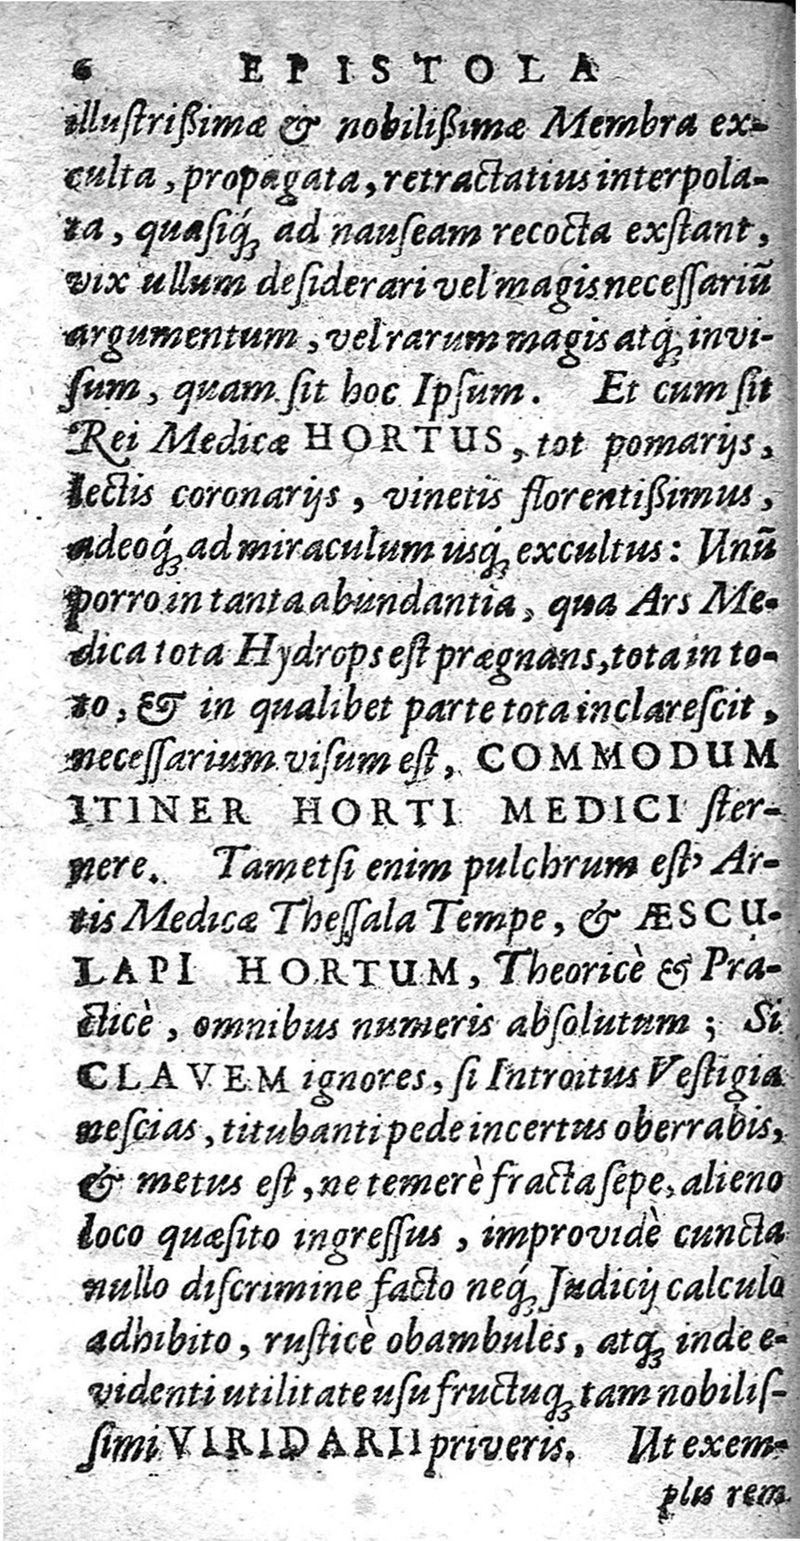 6 EPISTOLA
illustrißimæ & nobilißimæ Membra ex-
culta, propagata, retractatius interpola-
ta, quasiq́; ad nauseam recocta exstant,
vix ullum desiderari vel magis necessariũ
argumentum, vel rarum magis atq́; invi-
sum, quam sit hoc Ipsum. Et cum sit
Rei Medicæ HORTUS, tot pomarijs,
lectis coronarijs, vinetis florentißimus,
adeoq́; ad miraculum usq́; excultus: Unũ
porro in tanta abundantia, qua Ars Me-
dica tota Hydrops est prægnans, tota in to-
to, & in qualibet parte tota inclarescit,
necessarium visum est, COMMODUM
ITINER HORTI MEDICI ster-
nere. Tametsi enim pulchrum est, Ar-
tis Medicæ Thessala Tempe, & ÆSCU-
LAPI HORTUM, Theoricè & Pra-
cticè, omnibus numeris absolutum; Si
CLAVEM ignores, si Introitus Vestigia
nescias, titubanti pede incertus oberrabis,
& metus est, ne temerè fracta sepe, alieno
loco quæsito ingressus, improvidè cuncta
nullo discrimine facto neq́; Judicij calculo
adhibito, rusticè obambules, atq́; inde e-
videnti utilitate usu fructuq́; tam nobilis-
simi VIRIDARII priveris. Ut exem-
plus rem